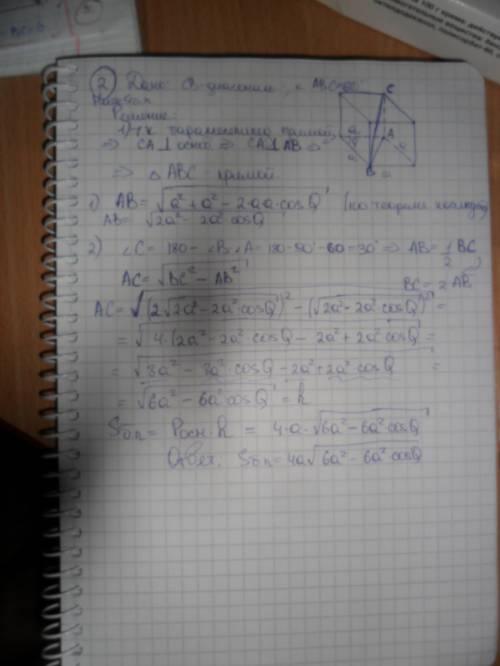 ② Дано: a - диагональ, ∠ ABC=60°
Решение:
1) Т.к. параллелепипед прямой,
⇒ CA ⊥ осн. ⇒ CA ⊥ AB ⇒
⇒ △ ABC - прямой
1) AB = √(a² + a² - 2·a·a·cosQ) (по теореме косинусов)
AB = √(2a² - 2a² cosQ)
2) ∠C = 180 - ∠B - ∠A = 180-90-60=30° ⇒ AB = 1/2 BC
AC = √(BC² - AB²)
BC = 2 AB
AC = √((2√(2a²-2a²cosQ))² - (√(2a²-2a²cosQ))²) =
= √(4·(2a²-2a²·cosQ - 2a²+2a²cosQ) =
= √(8a² - 8a²·cosQ - 2a²+2a²cosQ) =
= √(6a² - 6a²cosQ) = h
Sб.п = Pосн·h = 4·a·√(6a²-6a²cosQ)
Ответ: Sб.п = 4a√(6a²-6a²cosQ)
C
A
B
a